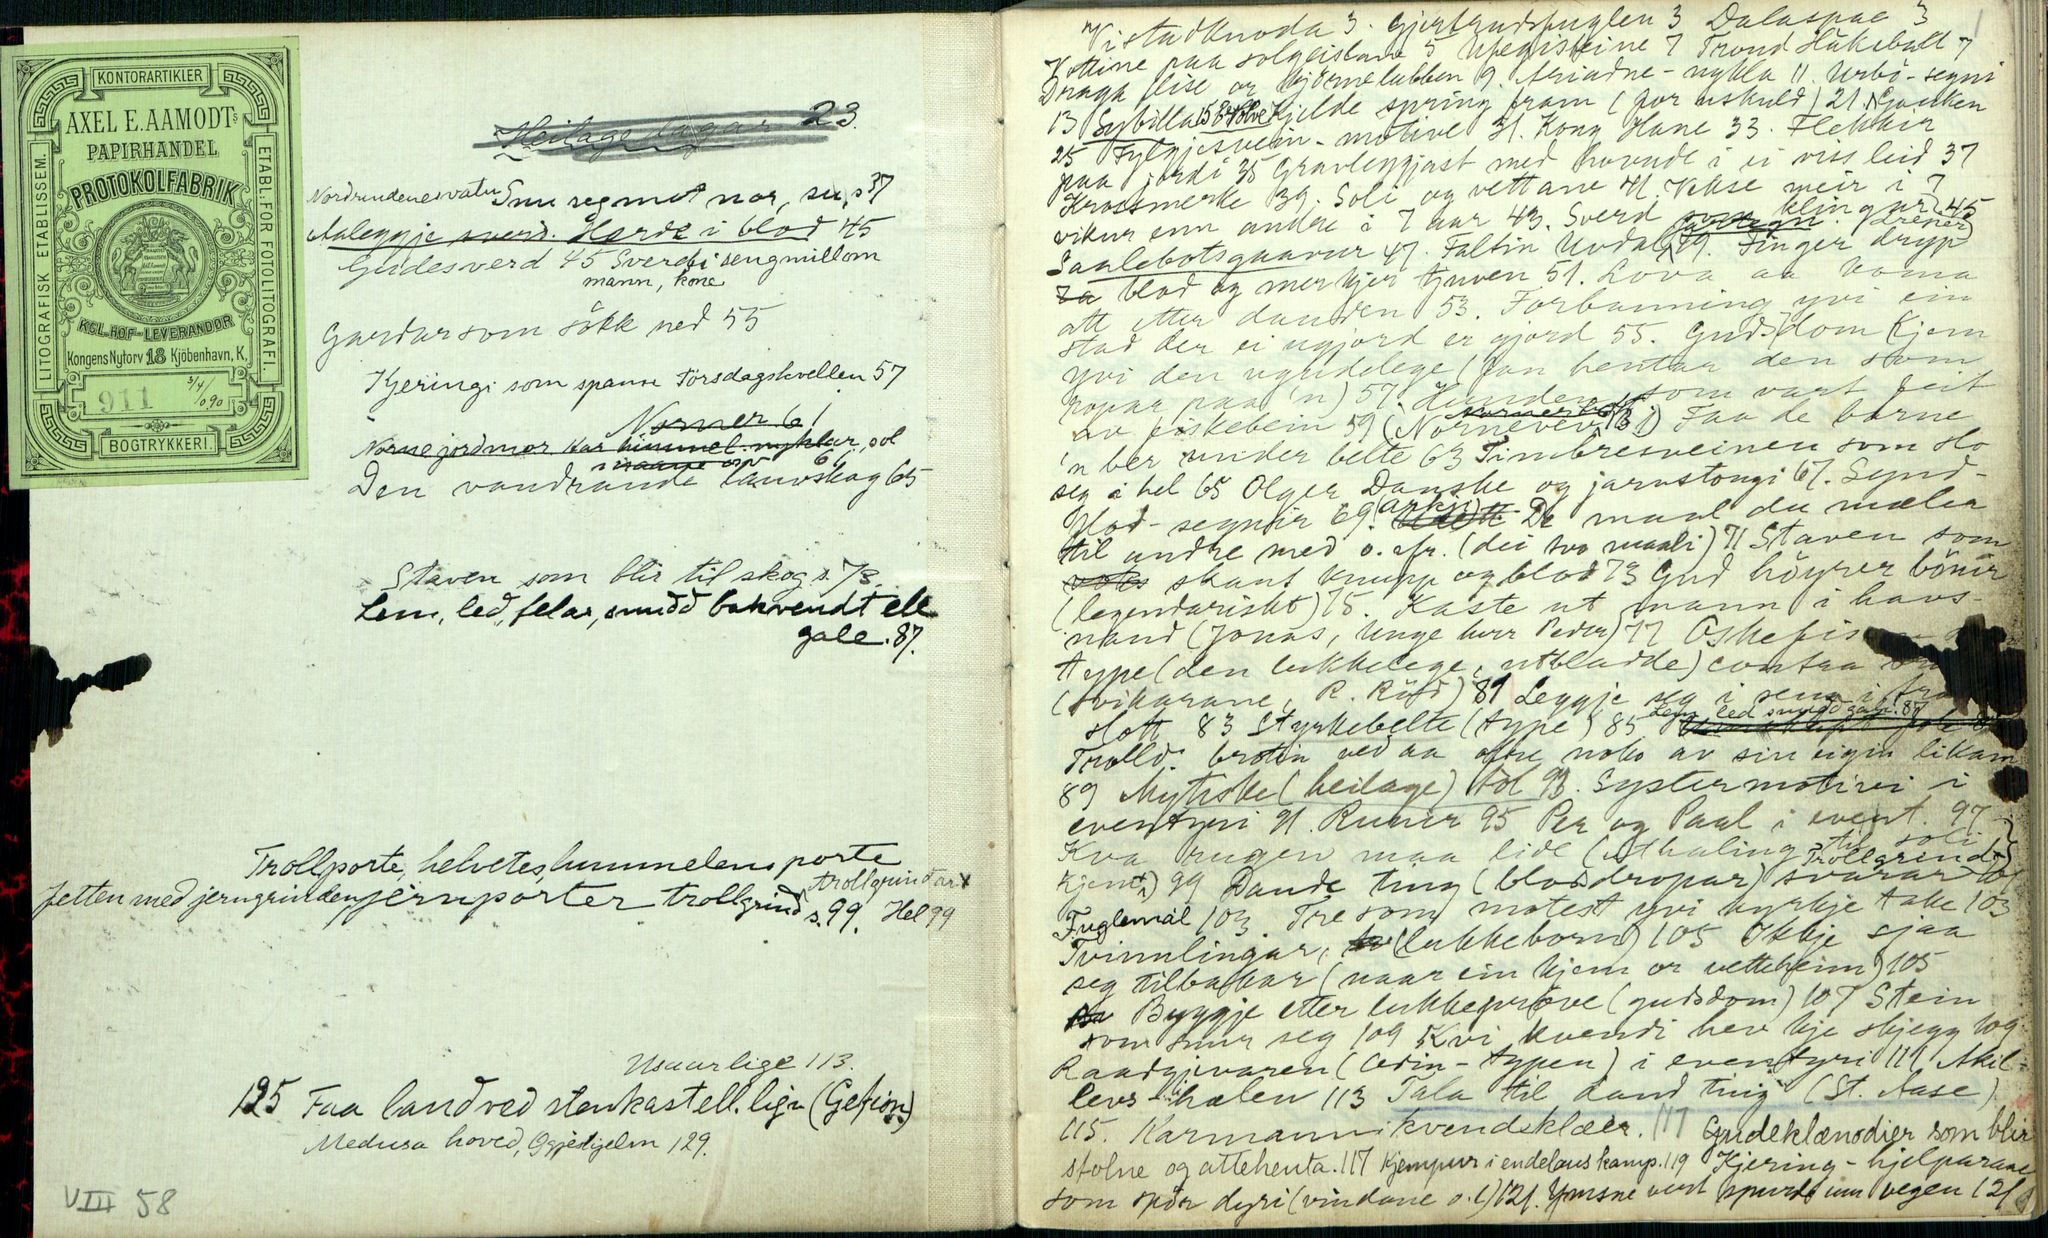 KONTORARTIKLER
AXEL E. AAMODTs
PAPIRHANDEL
PROTOKOLFABRIK
LITOGRAFISK ETABLISSEM.
ETABL. FOR FOTOLITOGRAFI.
KGL. HOF-LEVERANDØR
Kongens Nytorv 18 Kjöbenhavn, K.
911 3/4 090
BOGTRYKKERI
Heilage dagar 23.
Nordrundenesvatn Snu seg mot nor, su, s 37
Aaleggje sverd. Herde i blod 45
Gudesverd 45 Sverd i seng millom
mann, kone
Gardar som sökk ned 55
Kjeringi som spann Torsdagskvellen 57
Norner 61
Norne jordmor har himmel-nyklar, sol
maane 61
Den vandrande lauvskog 65
Staven som blir til skog s. 73.
Lem, led, felar, snudd bakvendt ell
gale. 87.
Trollporte, helvetes, himmelens porte
Jetten med jerngrinden jernporter trollgrind s. 99. Hel 99
trollgrindar
Usaarlige 113.
125 Faa land ved stenkast ell. lign (Gefion)
Medusa hoved, Øgjeshjelm 129.
VIII 58
1
Vistadknoda 3. Gjertrudsfuglen 3 Dalaspae 3
Kottine paa solgeislane 5 Uvegisteine 7 Trond Håkeball 7
Draga flise or bjørnelabben 9. Ariadne-nykla 11. Urbö-segni
13 Sybilla 15 Kjelde spring fram (for uskuld) 21. Gauken
25 Fylgjesvein-motive 31. Kong Hane 33. Flekkir
paa jordi 35 Gravleggjast med hovude i ei viss leid 37
Krossmerke 39. Soli og vettane 41. Vekse meir i 7
vikur enn andre i 7 aar 43. Sverd som klingar 45
Saalebotsgaavur 47. Faltin Uvdal 49. Finger dryp
blod og merkjer tjuven 51. Lova aa koma
att etter dauden 53. Forbanning yvi ein
stad der ei ugjord er gjord 55. Guds dom kjem
yvi den ugudelege (fan hentar den som
ropar paa 'n) 57. Hunden som vart feit
av fiskebein 59 (Nornevev 61) Faa de barne
'n ber under belte 63 Timbresveinen som slo
seg i hel 65 Olger Danske og jarnstongi 67. Synd-
flod-segnir 69. De maal du mæler
til andre med o. afr. (dei tvo maali) 71 Staven som
skaut knupp og blod 73 Gud höyrer bönir
(legendariskt) 75. Kaste ut mann i havs-
naud (Jonas, Unge herr Peder) 77 Oskefis
type (den lukkelege, utbladde) contra
(svikarane, R. Röd) 81 Leggje seg i seng i
slott 83 Styrkebelte (type) 85 Lem led snudd gale. 87
Trolld. broten ved aa ofre noko av sin eigin likam
89 Mytiske (heilage) tol 93. Systermotivi i
eventyri 91. Runir 95 Per og Paal i event. 97
Kva rugen maa lide (uthaling til soli
kjem) 99 Daude ting (blodropar) svarar 101
Trollgrind
Fuglemål 103. Tre som motest yvi kyrkje take 103
Tvinnlingar, (lukkeborn) 105 Ikkje sjaa
seg tilbakar (naar ein kjem or vetteheim) 105
Byggje etter lukkeprøve (gudsdom) 107 Stein
som snur seg 109 Kvi kvendi hev kje skjegg 109
Raadgjevaren (Odin-typen) i eventyri 111 Akil-
levs-hælen 113 Tala til daud ting (St. Aase)
115. Karmann i kvendeklær. 117 Gudeklænodier som blir
stolne og attehenta. 117 Kjempur i endelaus kamp. 119 Kjering-hjelparane
som spör dyri (vindane o. l.) 121. Ymsne vert spurde um vegen 121